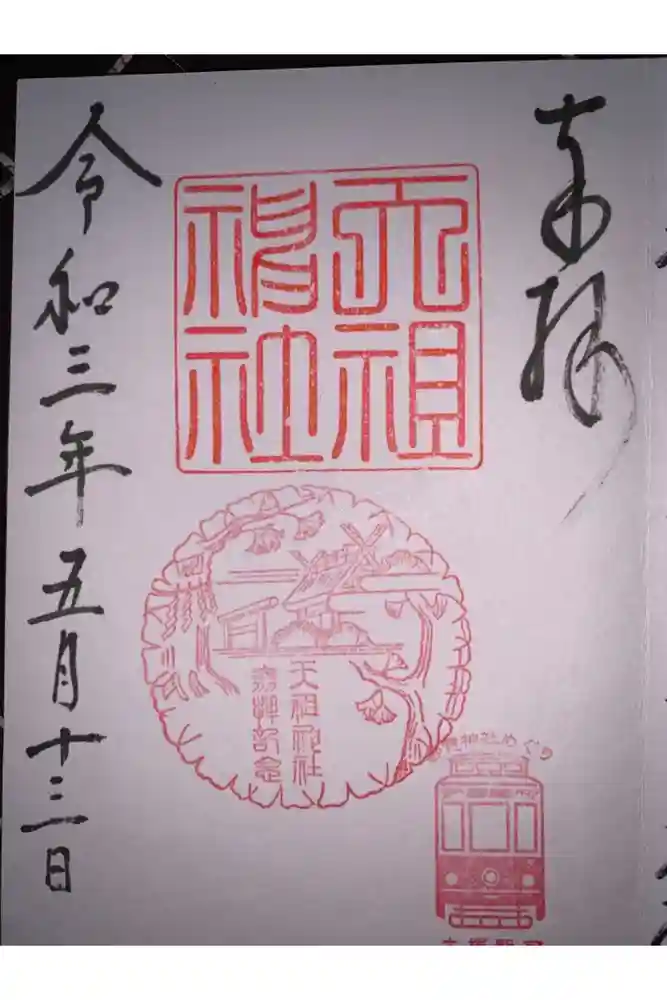 奉拝
天祖
神社
天祖神社
参拝記念
神社めぐり
令和三年五月十三日